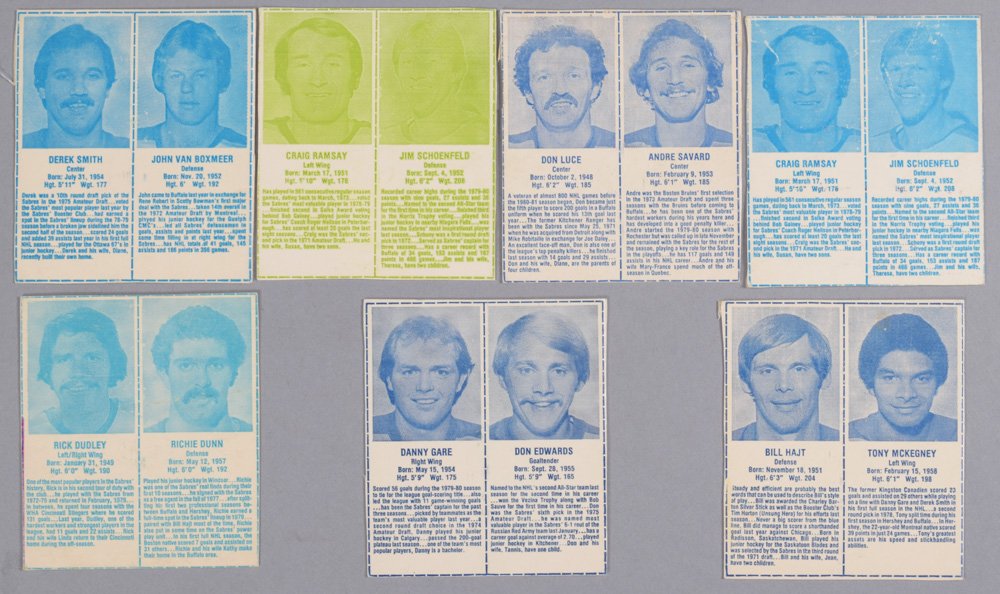 DEREK SMITH
Center
Born: July 31, 1954
Hgt. 5'11" Wgt. 177
Derek was a 10th round draft pick of the
Sabres in the 1975 Amateur Draft...voted
the Sabres' most popular player last year by
the Sabres Booster Club...had earned a
spot in the Sabres' lineup during the 78-79
season before a broken jaw sidelined him the
second half of the season...scored 24 goals
and added 39 assists last year in his first full
NHL season...played for the Ottawa 67's in
junior hockey...Derek and his wife, Diane,
recently built their own home.
JOHN VAN BOXMEER
Defense
Born: Nov. 20, 1952
Hgt. 6' Wgt. 192
John came to Buffalo last year in exchange for
Rene Robert in Scotty Bowman's first major
deal with the Sabres...taken 14th overall in
the 1972 Amateur Draft by Montreal,
played his junior hockey for the Guelph
CMC's...led all Sabres' defensemen in
goals, assists and points last year...spent
some time filling in at right wing for the
Sabres...has NHL totals of 41 goals, 145
assists and 186 points in 356 games.
CRAIG RAMSAY
Left Wing
Born: March 17, 1951
Hgt. 5'10" Wgt. 176
Has played in 561 consecutive regular season
games, dating back to March, 1973...voted
the Sabres' most valuable player in 1978-79
...finished second in Selke Award voting
behind Bob Gainey...played junior hockey
for Sabres' Coach Roger Neilson in Peterbor-
ough...has scored at least 20 goals the last
eight seasons...Craig was the Sabres' sec-
ond pick in the 1971 Amateur Draft...He and
his wife, Susan, have two sons.
JIM SCHOENFELD
Defense
Born: Sept. 4, 1952
Hgt. 6'2" Wgt. 208
Recorded career highs during the 1979-80
season with nine goals, 27 assists and 36
points...Named to the second All-Star team
for the first time in his career...finished third
in the Norris Trophy voting...played his
junior hockey in nearby Niagara Falls...was
named the Sabres' most inspirational player
last season...Schony was a first round draft
pick in 1972...Served as Sabres' captain for
three seasons...Has a career record with
Buffalo of 34 goals, 153 assists and 187
points in 460 games...Jim and his wife,
Theresa, have two children.
DON LUCE
Center
Born: October 2, 1948
Hgt. 6'2" Wgt. 185
A veteran of almost 800 NHL games before
the 1980-81 season began, Don became just
the fifth player to score 200 goals in a Buffalo
uniform when he scored his 13th goal last
year...the former Kitchener Ranger has
been with the Sabres since May 25, 1971
when he was acquired from Detroit along with
Mike Robitaille in exchange for Joe Daley...
An excellent face-off man, Don is also one of
the league's top penalty killers...he finished
last season with 14 goals and 29 assists...
Don and his wife, Diane, are the parents of
four children.
ANDRE SAVARD
Center
Born: February 9, 1953
Hgt. 6'1" Wgt. 185
Andre was the Boston Bruins' first selection
in the 1973 Amateur Draft and spent three
seasons with the Bruins before coming to
Buffalo...he has been one of the Sabres'
hardest workers during his years here and
has developed into a good penalty killer...
Andre started the 1979-80 season with
Rochester but was called up in late November
and remained with the Sabres for the rest of
the season, playing a key role for the Sabres
in the playoffs...he has 117 goals and 149
assists in his NHL career...Andre and his
wife Mary-France spend much of the off-
season in Quebec.
CRAIG RAMSAY
Left Wing
Born: March 17, 1951
Hgt. 5'10" Wgt. 176
Has played in 561 consecutive regular season
games, dating back to March, 1973...voted
the Sabres' most valuable player in 1978-79
...finished second in Selke Award voting
behind Bob Gainey...played junior hockey
for Sabres' Coach Roger Neilson in Peterbor-
ough...has scored at least 20 goals the last
eight seasons...Craig was the Sabres' sec-
ond pick in the 1971 Amateur Draft...He and
his wife, Susan, have two sons.
JIM SCHOENFELD
Defense
Born: Sept. 4, 1952
Hgt. 6'2" Wgt. 208
Recorded career highs during the 1979-80
season with nine goals, 27 assists and 36
points...Named to the second All-Star team
for the first time in his career...finished third
in the Norris Trophy voting...played his
junior hockey in nearby Niagara Falls...was
named the Sabres' most inspirational player
last season...Schony was a first round draft
pick in 1972...Served as Sabres' captain for
three seasons...Has a career record with
Buffalo of 34 goals, 153 assists and 187
points in 460 games...Jim and his wife,
Theresa, have two children.
RICK DUDLEY
Left/Right Wing
Born: January 31, 1949
Hgt. 6'0" Wgt. 190
One of the most popular players in the Sabres'
history, Rick is in his second tour of duty with
the club...he played with the Sabres from
1972-75 and returned in February, 1979...
in between, he spent four seasons with the
WHA Cincinnati Stingers where he scored
131 goals...Last year, Dudley, one of the
hardest workers and strongest players in the
league, had 11 goals and 22 assists...Rick
and his wife Linda return to their Cincinnati
home during the off-season.
RICHIE DUNN
Defense
Born: May 12, 1957
Hgt. 6'0" Wgt. 192
Played his junior hockey in Windsor...Richie
was one of the Sabres' real finds during their
first 10 seasons...he signed with the Sabres
as a free agent in the fall of 1977...after split-
ting his first two professional seasons be-
tween Buffalo and Hershey, Richie earned a
full-time spot in the Sabres' lineup in 1979...
paired with Bill Hajt most of the time, Richie
also put in some time on the Sabres' power
play unit...in his first full NHL season, the
Boston native scored 7 goals and assisted on
31 others...Richie and his wife Kathy make
their home in the Buffalo area.
DANNY GARE
Right Wing
Born: May 15, 1954
Hgt. 5'9" Wgt. 175
Scored 56 goals during the 1979-80 season
to tie for the league goal-scoring title...also
led the league with 11 game-winning goals
...has been the Sabres' captain for the past
three seasons...picked by teammates as the
team's most valuable player last year...a
second round draft choice in the 1974
Amateur Draft, Danny played his junior
hockey in Calgary...passed the 200-goal
plateau last season...one of the team's most
popular players, Danny is a bachelor.
DON EDWARDS
Goaltender
Born: Sept. 28, 1955
Hgt. 5'9" Wgt. 165
Named to the NHL's second All-Star team last
season for the second time in his career
...won the Vezina Trophy along with Bob
Sauve for the first time in his career...Don
was the Sabres' sixth pick in the 1975
Amateur Draft...he was named most
valuable player in the Sabres' 6-1 rout of the
Soviet Red Army team last January...has a
career goal against average of 2.70...played
junior hockey in Kitchener...Don and his
wife, Tannis, have one child.
BILL HAJT
Defense
Born: November 18, 1951
Hgt. 6'3" Wgt. 204
Steady and efficient are probably the best
words that can be used to describe Bill's style
of play...Bill was awarded the Charley Bar-
ton Silver Stick as well as the Booster Club's
Tim Horton (Unsung Hero) for his efforts last
season...Never a big scorer from the blue
line, Bill did manage to score a shorthanded
goal last year against Chicago...Born in
Radisson, Saskatchewan, Bill played his
junior hockey for the Saskatoon Blades and
was selected by the Sabres in the third round
of the 1971 draft...Bill and his wife, Jean,
have two children.
TONY MCKEGNEY
Left Wing
Born: February 15, 1958
Hgt. 6'1" Wgt. 198
The former Kingston Canadian scored 23
goals and assisted on 29 others while playing
on a line with Danny Gare and Derek Smith in
his first full season in the NHL...a second
round pick in 1978, Tony split time during his
first season in Hershey and Buffalo...In Her-
shey, the 22-year-old Montreal native scored
39 points in just 24 games...Tony's greatest
assets are his speed and stickhandling
abilities.